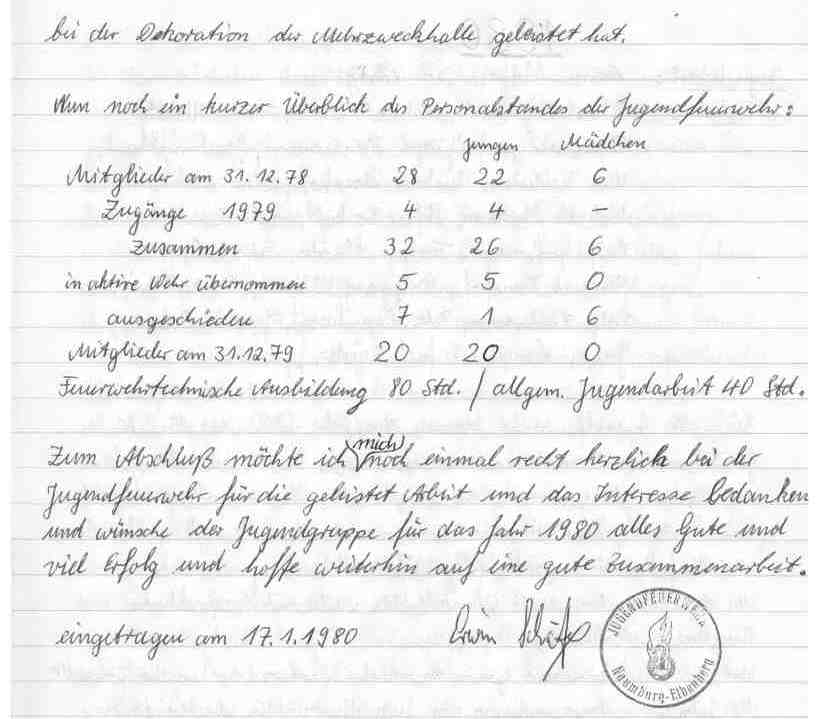 bei der Dekoration der Mehrzweckhalle geleistet hat.
Nun noch ein kurzer Überblick des Personalstandes der Jugendfeuerwehr:
Jungen Mädchen
Mitglieder am 31.12.78 28 22 6
Zugänge 1979 4 4 –
Zusammen 32 26 6
in aktive Wehr übernommen 5 5 0
ausgeschieden 7 1 6
Mitglieder am 31.12.79 20 20 0
Feuerwehrtechnische Ausbildung 80 Std. / allgem. Jugendarbeit 40 Std.
Zum Abschluß möchte ich mich noch einmal recht herzlich bei der
Jugendfeuerwehr für die geleistet Arbeit und das Interesse bedanken
und wünsche der Jugendgruppe für das Jahr 1980 alles Gute und
viel Erfolg und hoffe weiterhin auf eine gute Zusammenarbeit.
eingetragen am 17.1.1980 Erwin
JUGENDFEUERWEHR
Naumburg-Elbenberg